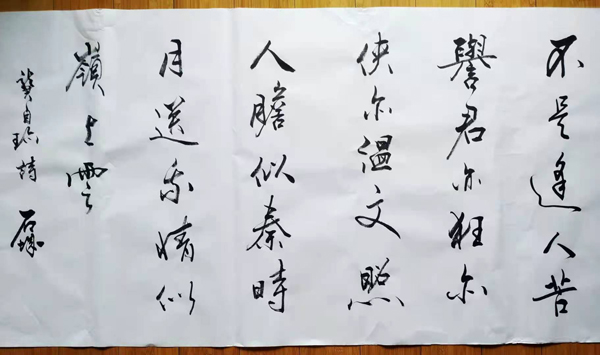 不是逢人苦
譽君亦狂亦
侠亦温文照
人膽似秦時
月送我情似
嶺上雲
龔自珍詩